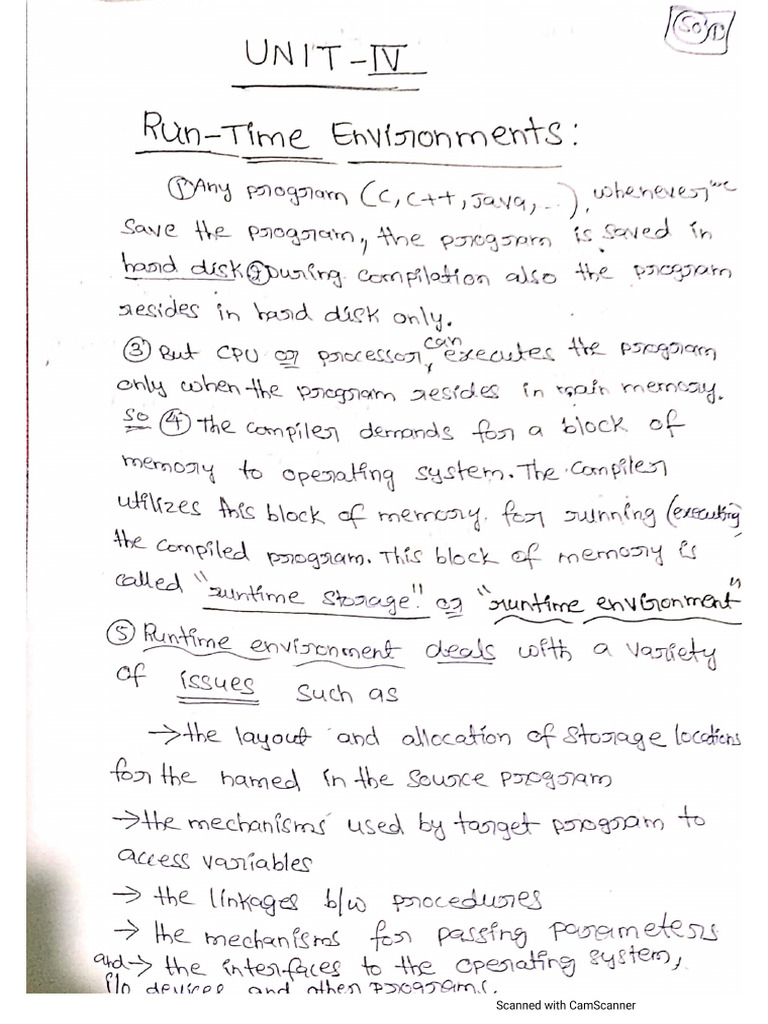 UNIT-IV
Run-Time Environments:
① Any program (C, C++, Java, ...), whenever we
save the program, the program is saved in
hard disk ② During compilation also the program
resides in hard disk only.
③ But CPU or processor, can executes the program
only when the program resides in main memory.
So ④ the compiler demands for a block of
memory to operating system. The compiler
utilizes this block of memory. for running (executing
the compiled program. This block of memory is
called "runtime storage" or "runtime environment"
⑤ Runtime environment deals with a variety
of issues such as
→ the layout and allocation of storage locations
for the named in the source program
→ the mechanisms used by target program to
access variables
→ the linkages b/w procedures
→ the mechanisms for passing parameters
and → the interfaces to the operating system,
I/o devices and other programs.
Scanned with CamScanner